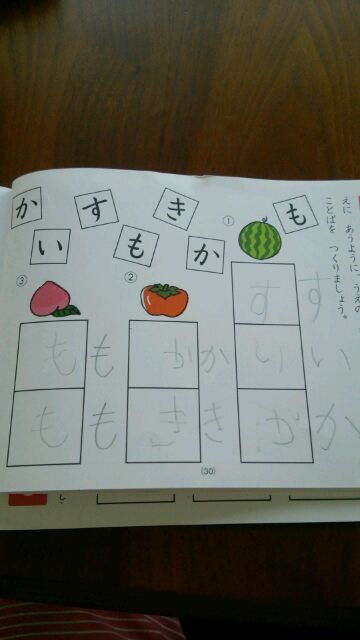 えに あうように、うえの
ことばを つくりましょう。
か す き も
い も か
①
す す
り い
が か
②
か か
き き
③
も も
も も
(30)